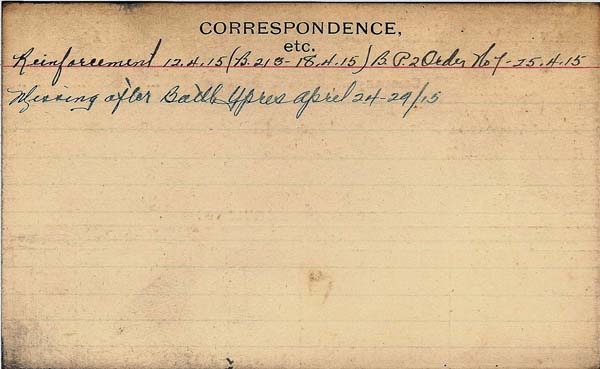 CORRESPONDENCE,
etc.
Reinforcement 12.4.15 (B.213-18.4.15) B.P.2 Order No 7-25.4.15
Missing after Battle Ypres April 24-29/15